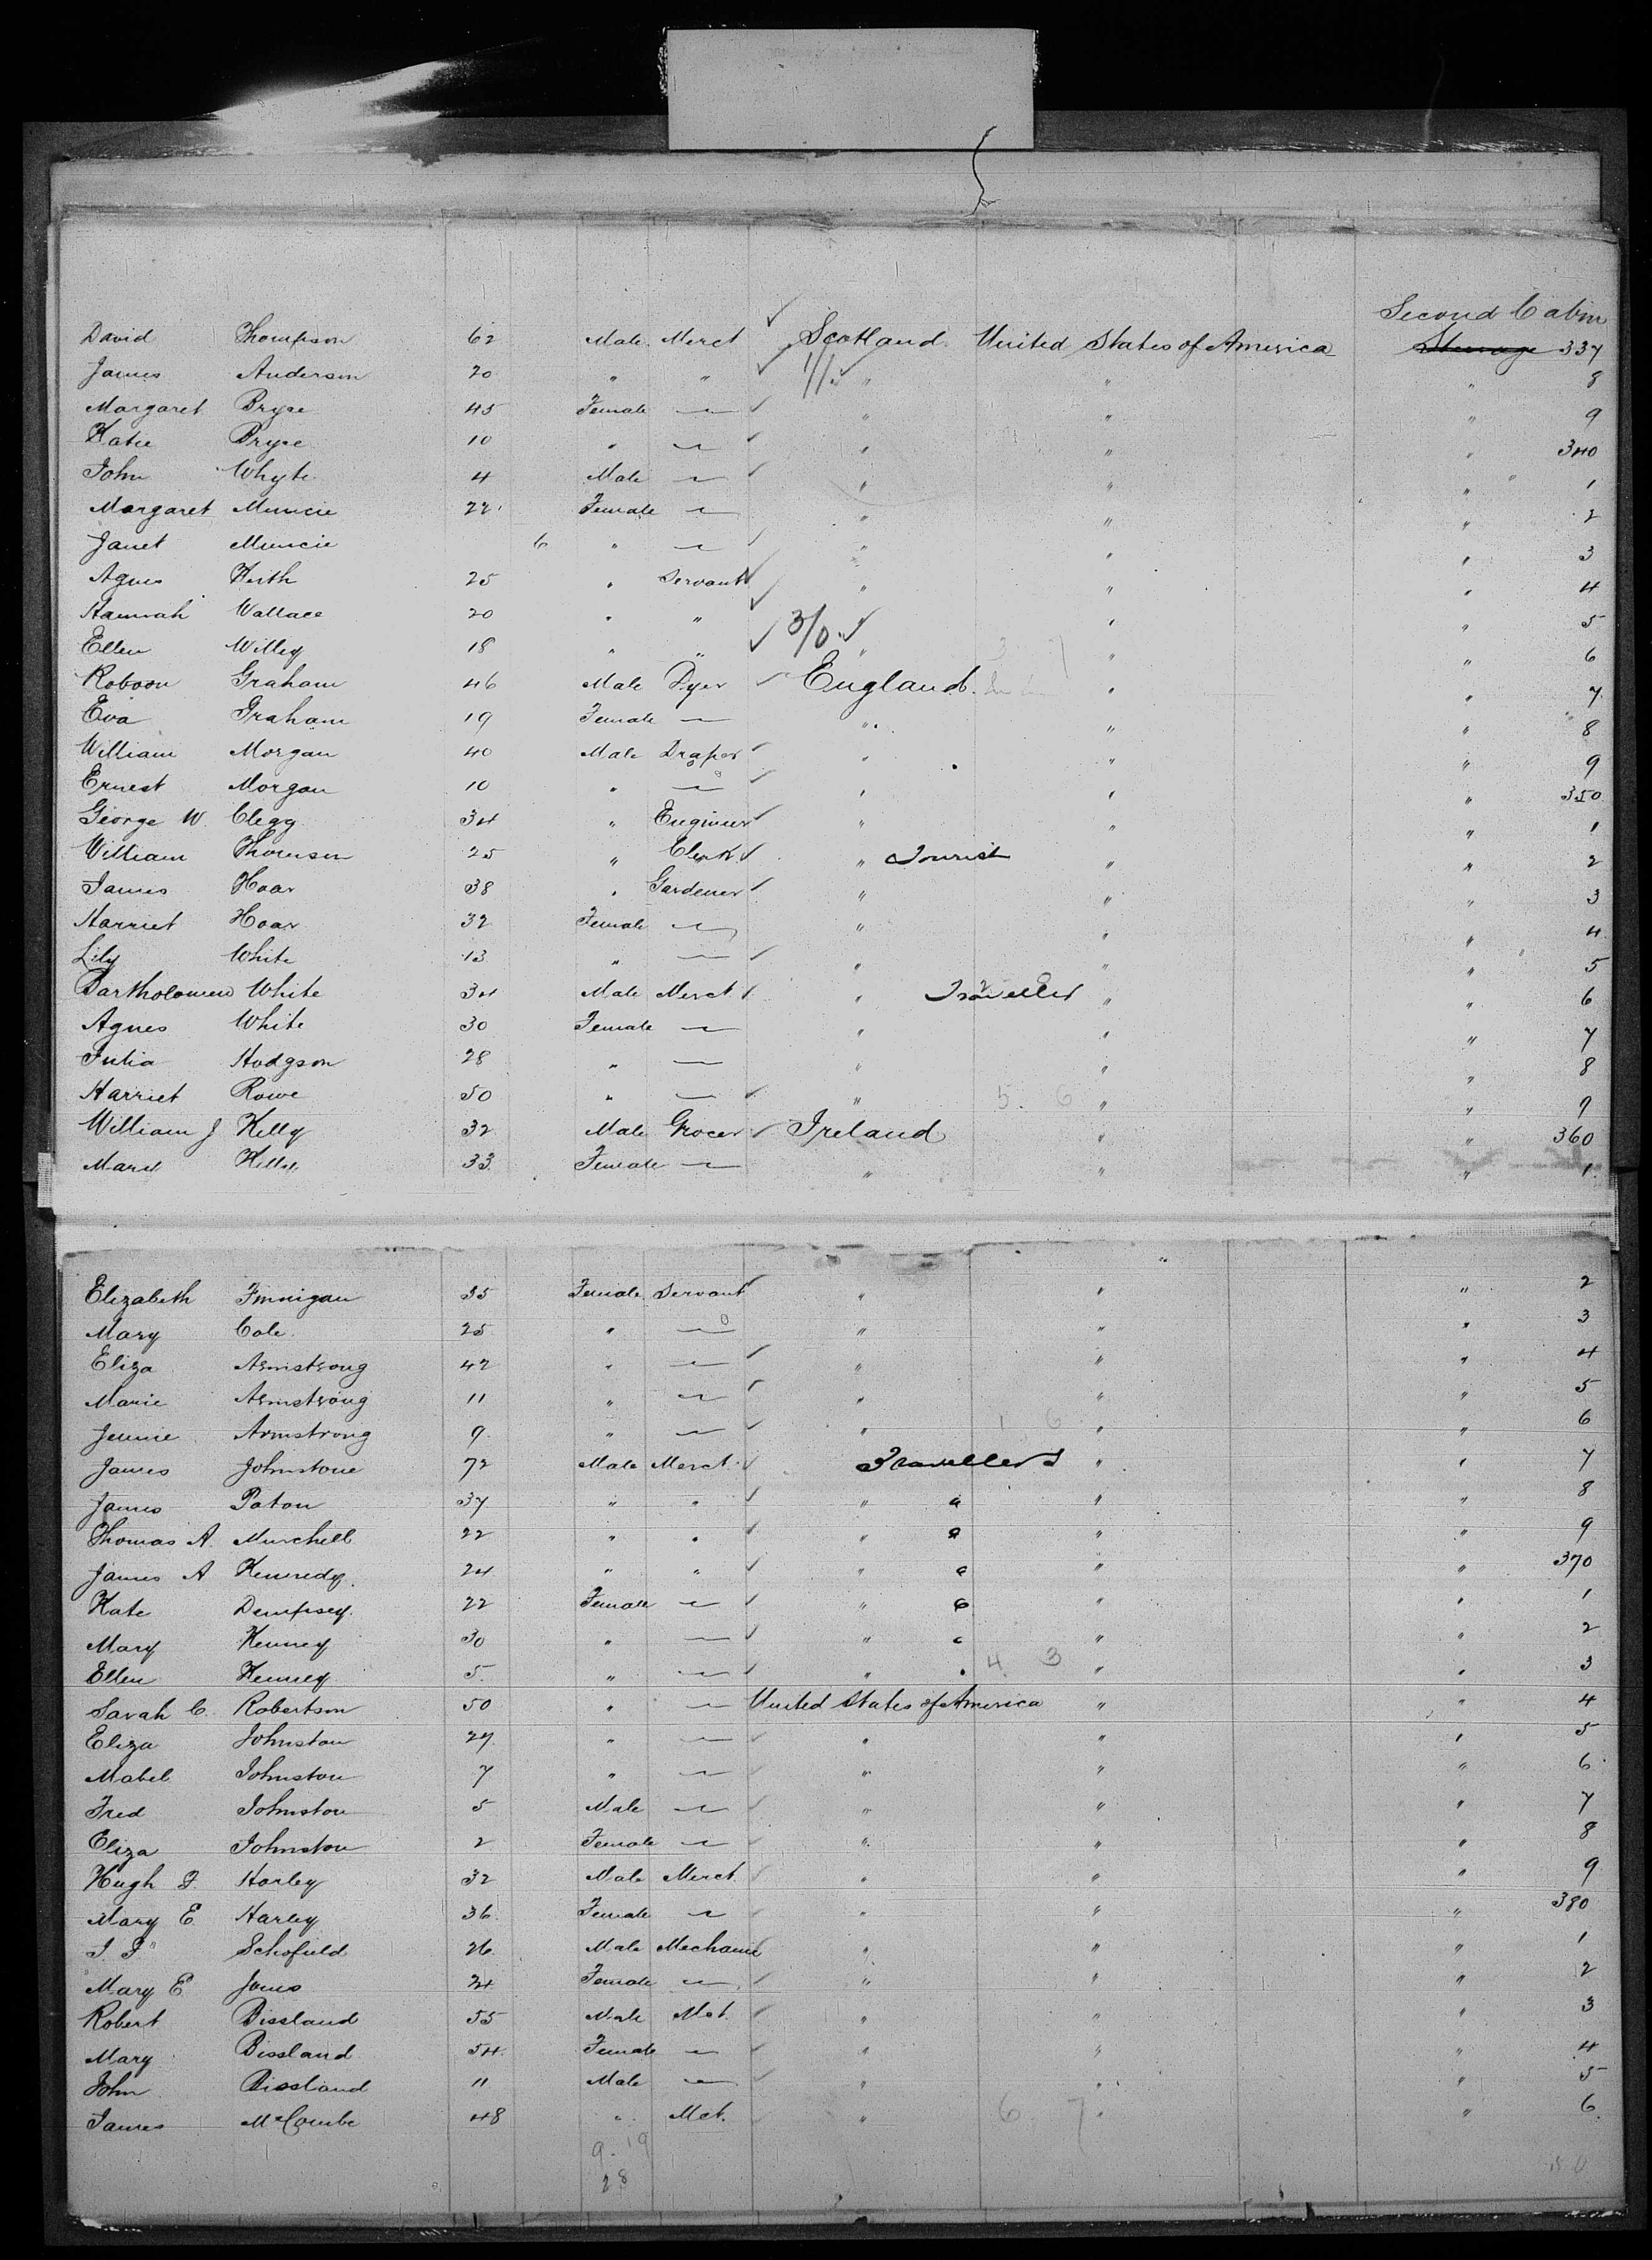 Second Cabin
David Thompson 62 Male Merct Scotland United States of America Steerage 337
James Anderson 20 " " 11/1 " " " 8
Margaret Bryce 45 Female — " " " 9
Katie Bryce 10 " — " " " 340
John Whyte 4 Male — " " " 1
Margaret Muncie 22 Female — " " " 2
Janet Muncie 6 " — " " " 3
Agnes Keith 25 " Servant " " " 4
Hannah Wallace 20 " " " " 5
Ellen Willey 18 " " 3/0 " " " 6
Robson Graham 46 Male Dyer England " " 7
Eva Graham 19 Female — " " " 8
William Morgan 40 Male Draper " " " 9
Ernest Morgan 10 " — " " " 350
George W. Clegg 34 " Engineer " " " 1
William Thomson 25 " Clerk " Tourist " " 2
James Hoar 38 " Gardener " " " 3
Harriet Hoar 32 Female — " " " 4
Lily White 13 " — " " " 5
Bartholomew White 34 Male Merct " Traveller " " 6
Agnes White 30 Female — " " " 7
Julia Hodgson 28 " — " " " 8
Harriet Rowe 50 " — " 5. 6 " " 9
William J Kelly 32 Male Grocer Ireland " " 360
Mary Kelly 33 Female — " " " 1
Elizabeth Finnigan 35 Female Servant " " " 2
Mary Cole 25 " — " " " 3
Eliza Armstrong 42 " — " " " 4
Marie Armstrong 11 " — " " " 5
Jennie Armstrong 9 " — " 1 6 " " 6
James Johnstone 72 Male Merct. Travellers " " 7
James Paton 37 " " " " " 8
Thomas A. Murchell 22 " " " " " 9
James A Kennedy 24 " " " " " 370
Kate Dempsey 22 Female — " " " 1
Mary Kenney 30 " — " " " 2
Ellen Kenney 5 " — " 4 3 " " 3
Sarah C. Robertson 50 " — United States of America " " 4
Eliza Johnston 27 " — " " " 5
Mabel Johnston 7 " — " " " 6
Fred Johnston 5 Male — " " " 7
Eliza Johnston 2 Female — " " " 8
Hugh Harley 32 Male Merct. " " " 9
Mary E. Harley 36 Female — " " " 380
Schofield 26 Male Mechanic " " " 1
Mary E Jones 24 Female — " " " 2
Robert Bissland 55 Male Mct. " " " 3
Mary Bissland 54 Female — " " " 4
John Bissland 11 Male — " " " 5
James McCombe 48 " Mct. " 6 7 " " 6
9. 19
28